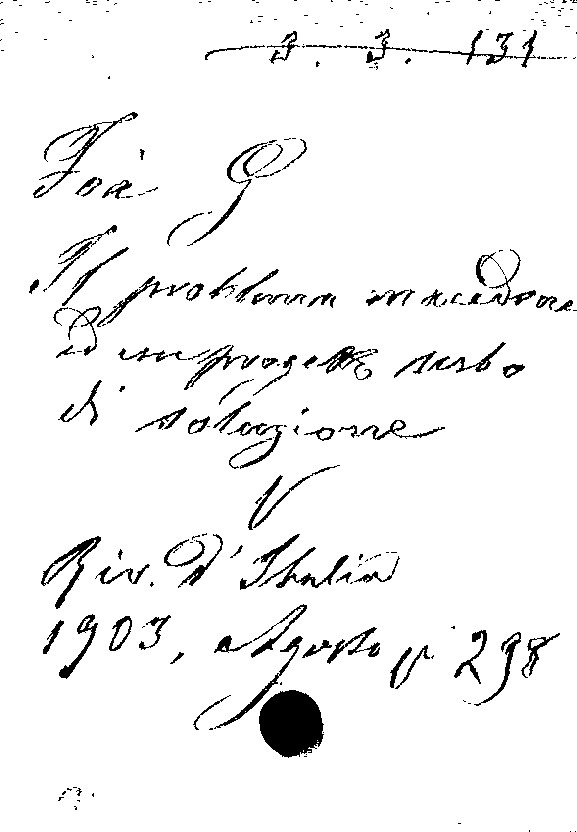 3. 3. 131
Foà G
Il problema macedone
ed un progetto serbo
di soluzione
V
Riv. d'Italia
1903, Agosto p 298